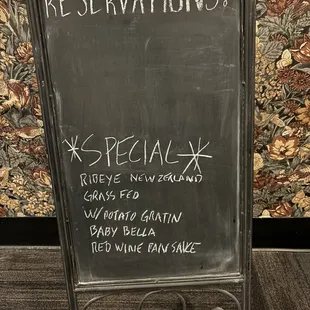 RESERVATIONS!
*SPECIAL*
RIBEYE NEW ZEALAND
GRASS FED
W/ POTATO GRATIN
BABY BELLA
RED WINE PAN SAKE